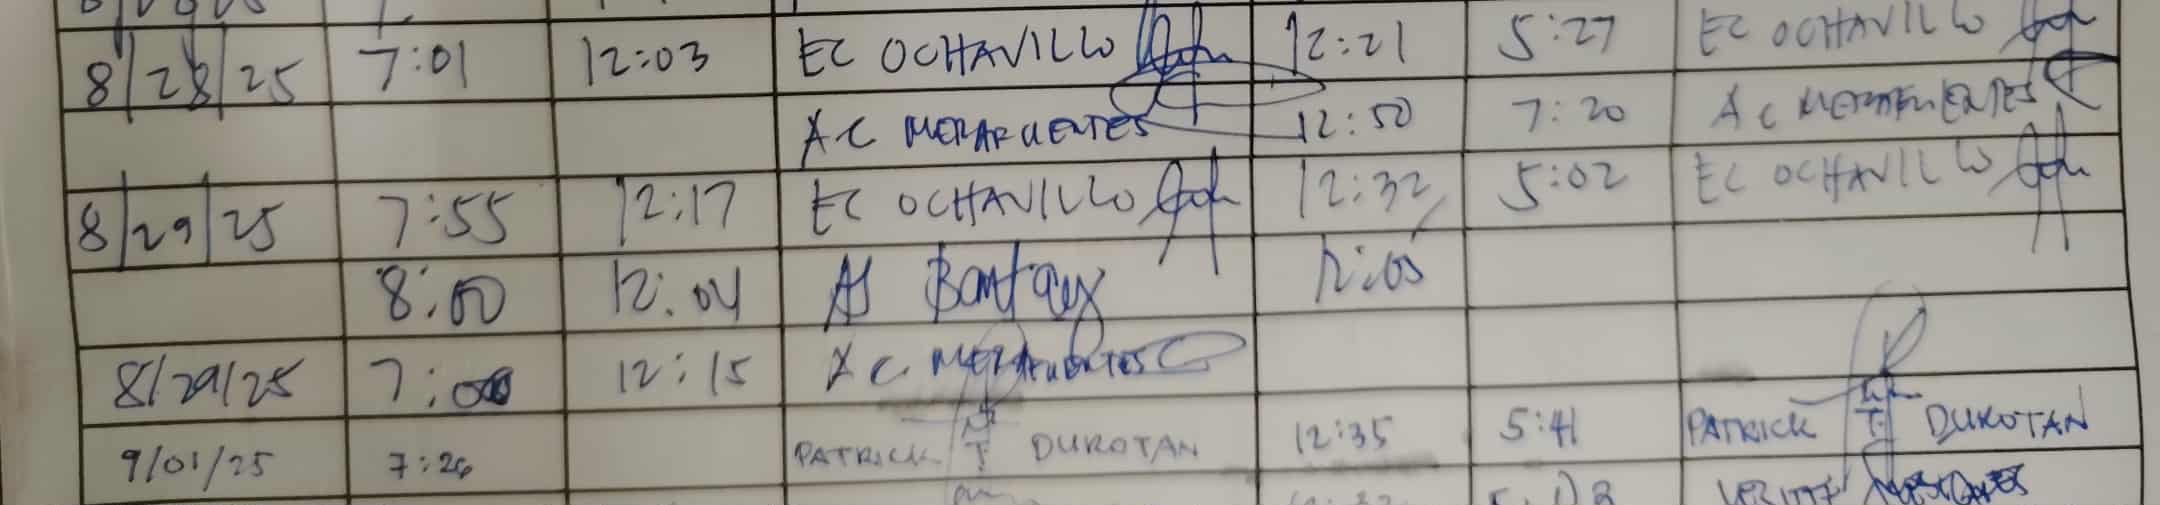 8/28/25 7:01 12:03 EC OCHAVILLO 12:21 5:27 EC OCHAVILLO
AC MERAFUENTES 12:50 7:20 AC MERAFUENTES
8/29/25 7:55 12:17 EC OCHAVILLO 12:32 5:02 EC OCHAVILLO
8:00 12:04 AJ Bantay 12:05
8/29/25 7:00 12:15 AC MERAFUENTES
9/01/25 7:26 PATRICK T. DUROTAN 12:35 5:41 PATRICK T. DUROTAN